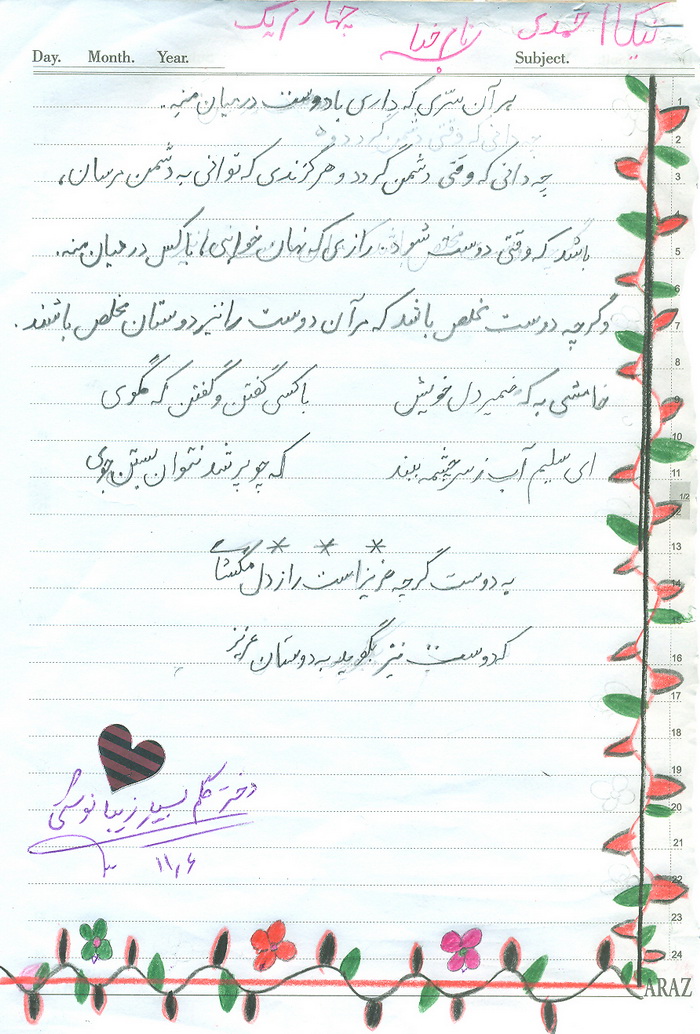 نیکا احمدی
بنام خدا
چهارم یک
Day. Month. Year. Subject.
هر آن سرّی که داری با دوست در میان منه.
چه دانی که وقتی دشمن گردد و
چه دانی که وقتی دشمن گردد و هر گزندی که توانی به دشمن مرسان،
باشد که وقتی دوست شود. رازی که نهان خواهی، با کس در میان منه.
وگرچه دوست مخلص باشد که مر آن دوست را نیز دوستان مخلص باشند.
خامشی به که ضمیر دل خویش با کسی گفتن و گفتن که مگوی
ای سلیم آب ز سرچشمه ببند که چو پر شد نتوان بستن جوی
* * *
به دوست گرچه عزیز است راز دل مگشای
که دوست نیز بگوید به دوستان عزیز
دختر گلم بسیار زیبا نوشتی
۱۱/۶
1
2
3
4
5
6
7
8
9
10
11
1/2
12
13
14
15
16
17
18
19
20
21
22
23
24
ARAZ